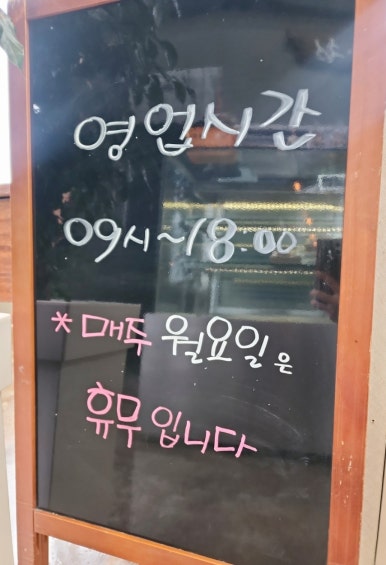 영업시간
09시~18:00
* 매주 월요일은
휴무입니다